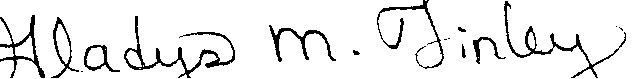 Gladys M. Finley